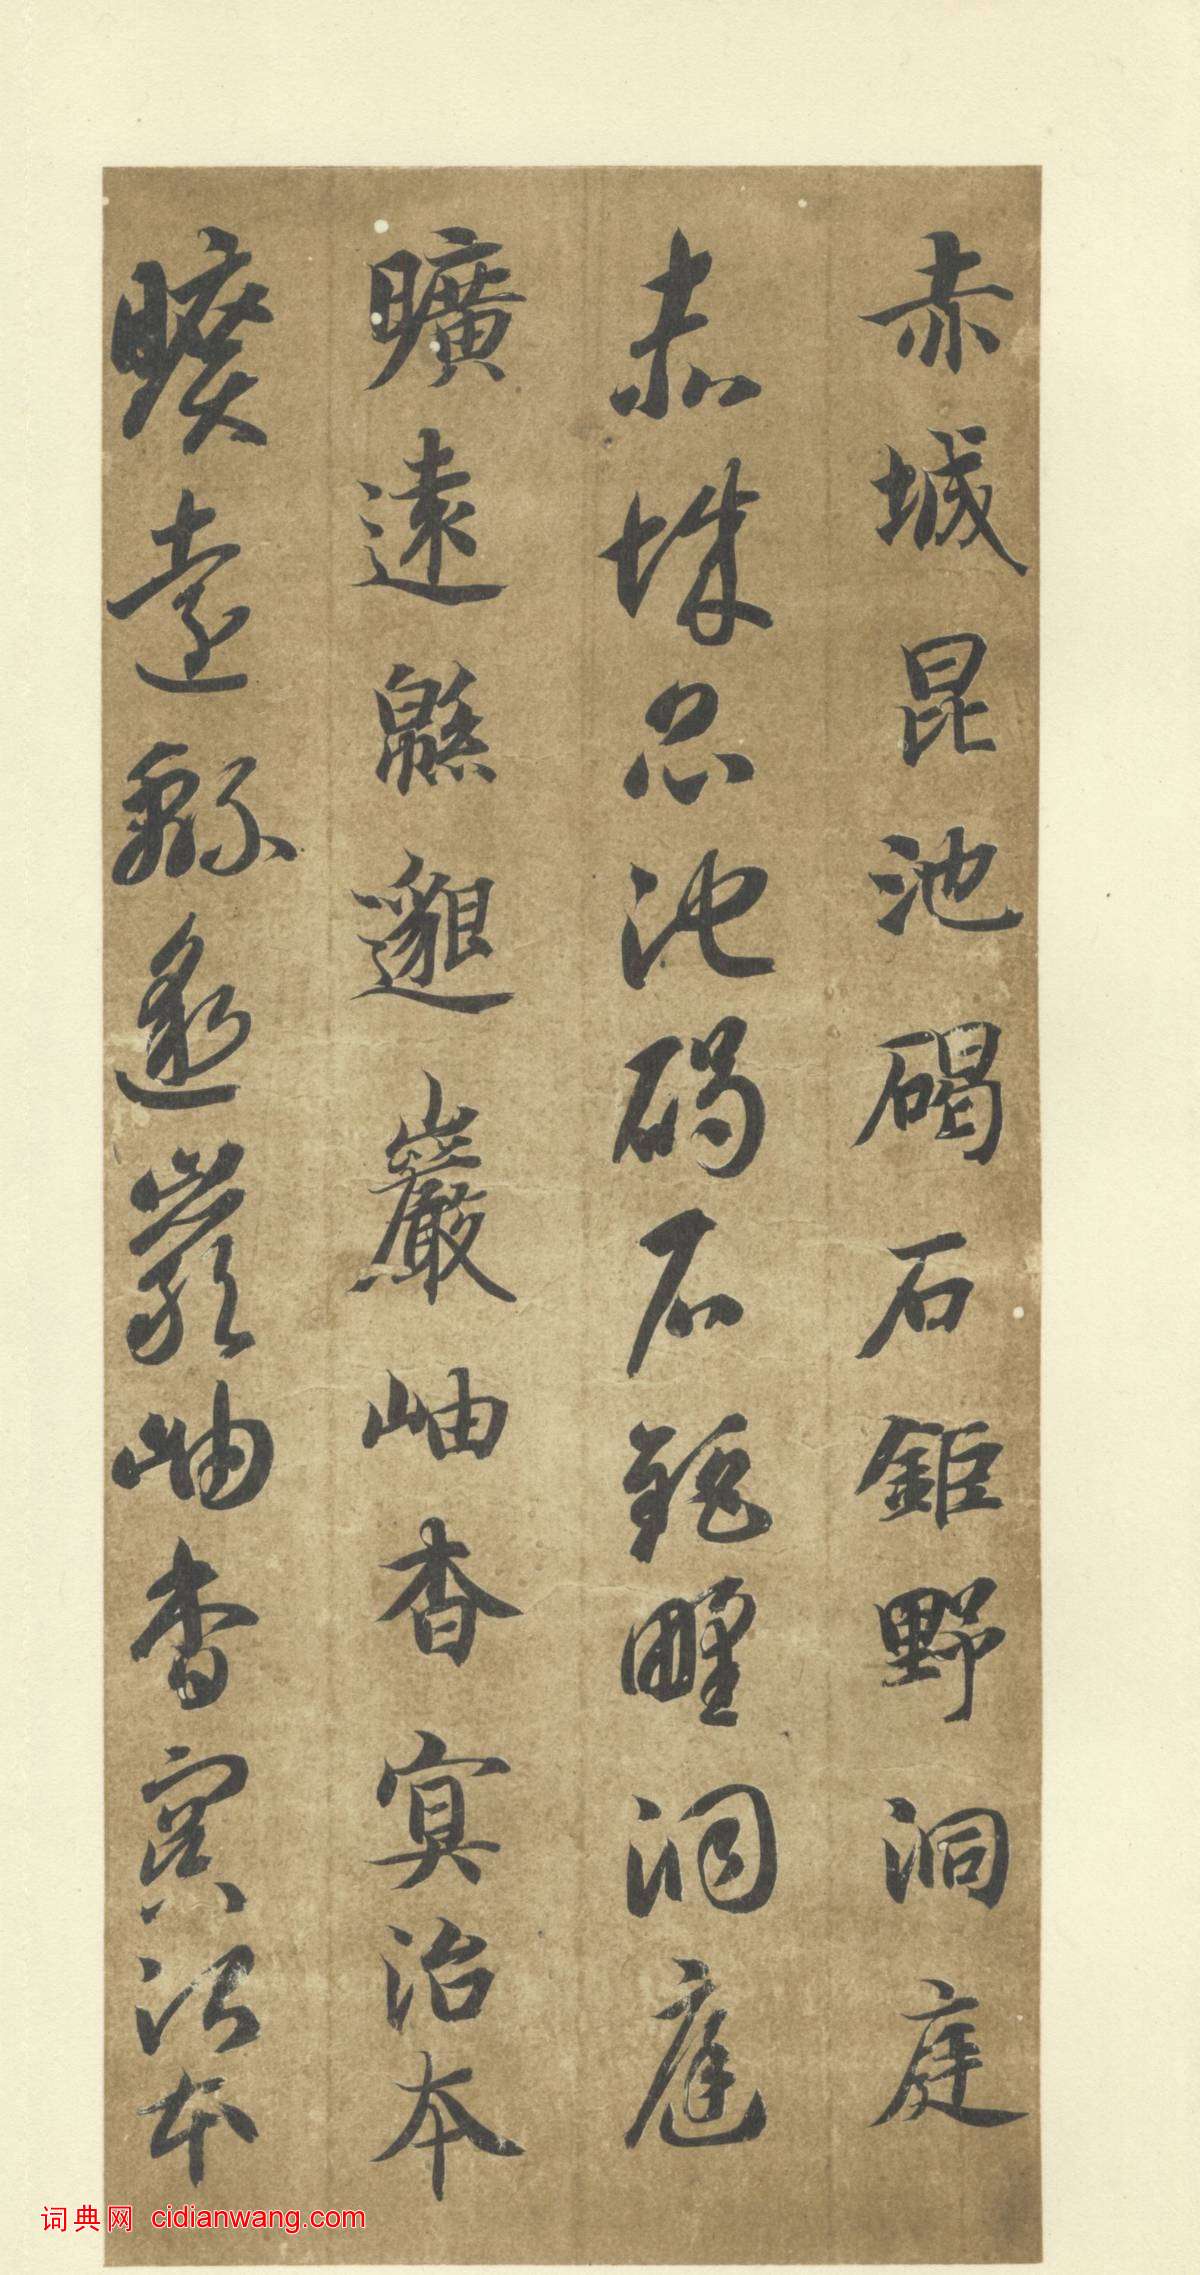 赤城昆池碣石鉅野洞庭
赤城昆池碣石鉅野洞庭
曠遠緜邈巖岫杳冥治本
曠遠緜邈巖岫杳冥治本
词典网 cidianwang.com